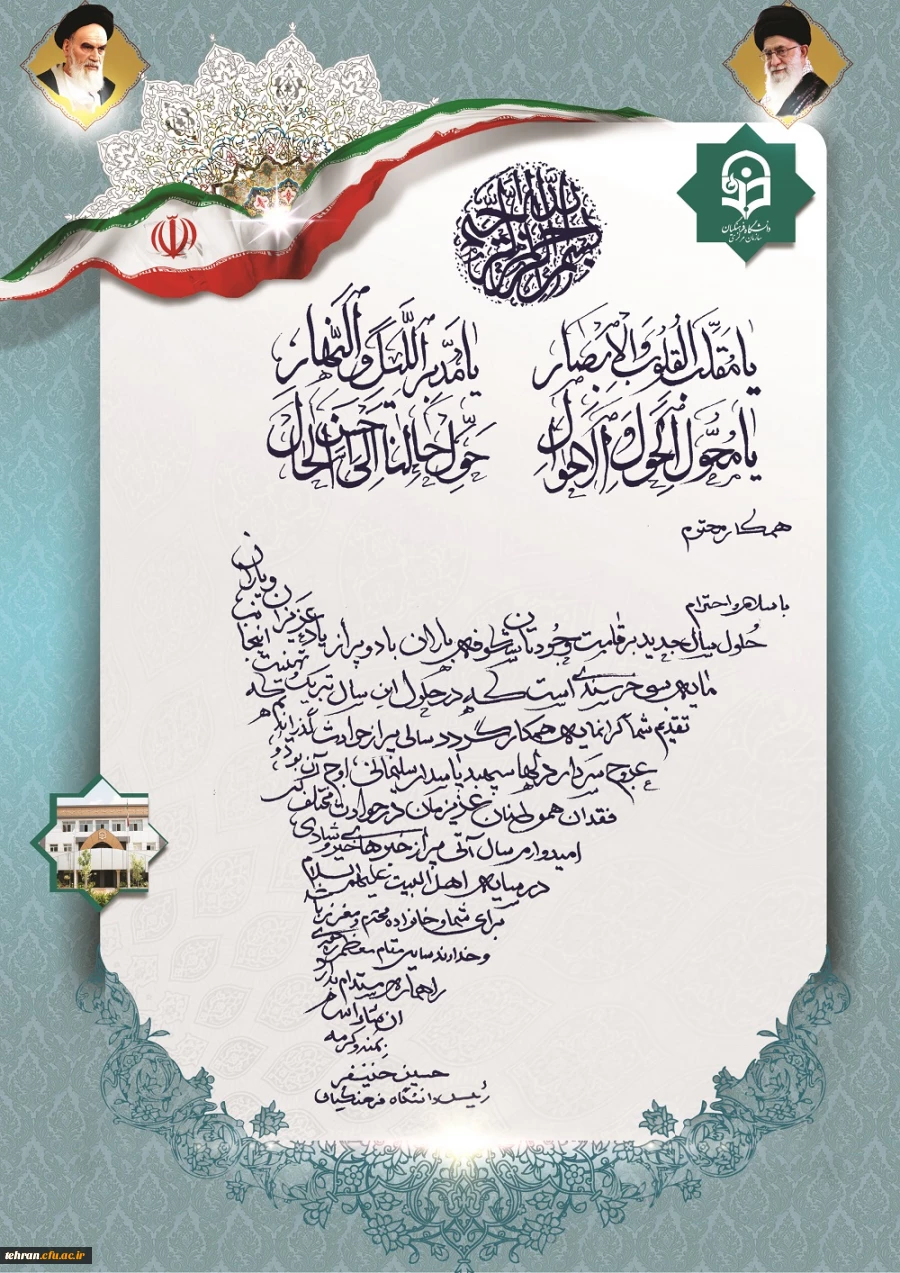 بسم الله الرحمن الرحیم
دانشگاه فرهنگیان
سازمان مرکزی
یا مقلب القلوب والابصار یا مدبر اللیل والنهار
یا محول الحول والاحوال حول حالنا الی احسن الحال
همکار محترم
با سلام و احترام
حلول سال جدید بر قامت وجودتان شکوفه باران باد و پر از یاد عزیزان و یاران
مایه بسی خرسندی است که در حلول این سال تبریک و تهنیت
تقدیم شما گرانمایه همکار گردد سالی پر از حوادث گذراندیم که
عروج سردار دلها سپهبد پاسدار سلیمانی اوج آن بود و
فقدان هموطنان عزیزمان در حوادث مختلف
امیدوارم سال آتی پر از خبرهای خیر و شادی
در سایه اهل البیت علیهم السلام
برای شما و خانواده محترم و معزز باشد
و خداوند سایه مقام معظم رهبری
را همواره مستدام بدارد
ان شاءالله
بمنه و کرمه
حسین خنیفر
رئیس دانشگاه فرهنگیان
tehran.cfu.ac.ir